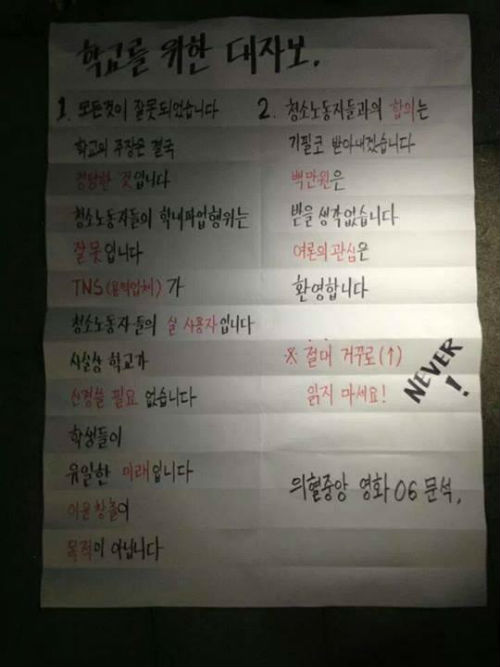 학교를 위한 대자보.
1. 모든것이 잘못되었습니다
학교의 주장은 결국
정당한 것입니다
청소노동자들의 학내파업행위는
잘못입니다
TNS(용역업체)가
청소노동자들의 실 사용자입니다
사실상 학교가
신경쓸 필요 없습니다
학생들이
유일한 미래입니다
이윤창출이
목적이 아닙니다
2. 청소노동자들과의 합의는
기필코 받아내겠습니다
백만원은
받을 생각없습니다
여론의 관심은
환영합니다
※ 절대 거꾸로(↑)
읽지 마세요!
NEVER!
의혈중앙 영화 06 문석.